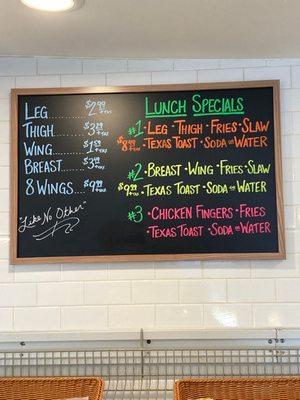 LEG......... $2.99 +TAX
THIGH....... $3.59 +TAX
WING........ $1.59 +TAX
BREAST..... $3.99 +TAX
8 WINGS..... $9.99 +TAX
"Like No Other"
LUNCH SPECIALS
#1 · LEG · THIGH · FRIES · SLAW
$8.99 +TAX · TEXAS TOAST · SODA OR WATER
#2 · BREAST · WING · FRIES · SLAW
$9.49 +TAX · TEXAS TOAST · SODA OR WATER
#3 · CHICKEN FINGERS · FRIES
· TEXAS TOAST · SODA OR WATER